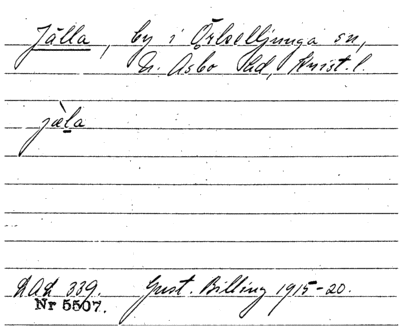 Jälla, by i Örkelljunga sn,
N. Åsbo hd, Krist. l.
jὰla
DAL 339. Gust. Billing 1915-20.
Nr 5507.